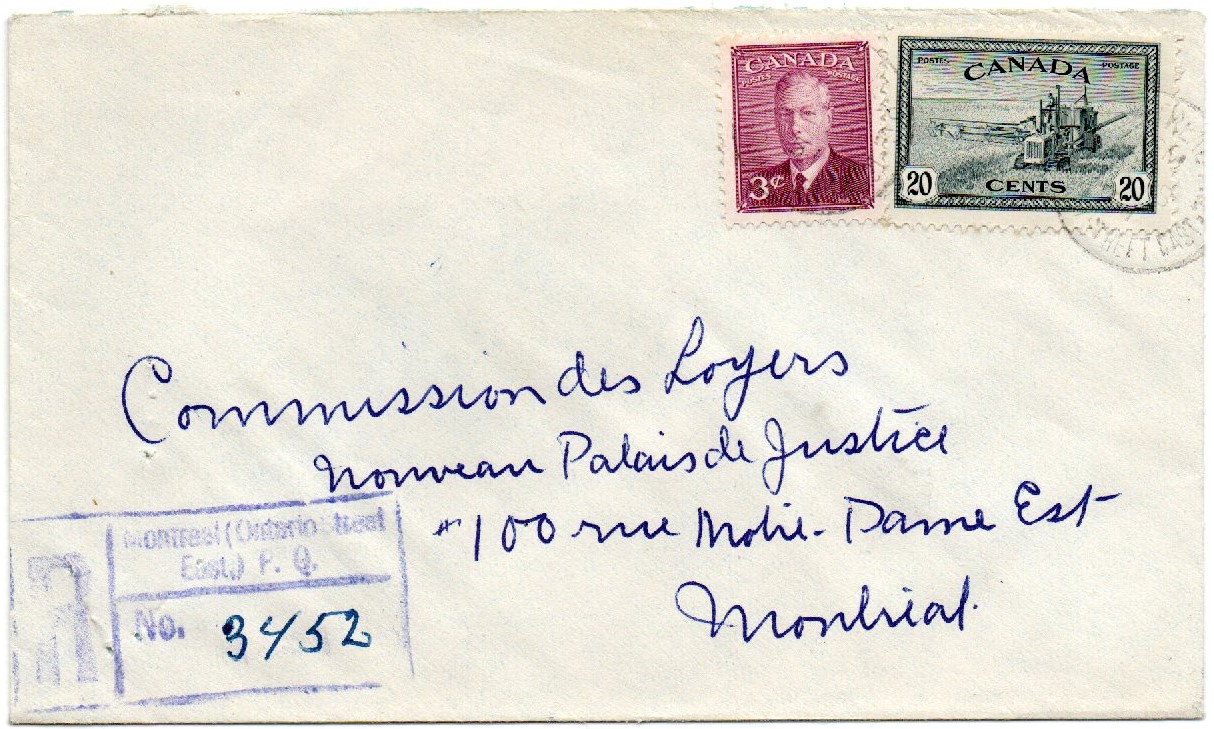 CANADA
POSTES POSTAGE
3¢
POSTES CANADA POSTAGE
20 CENTS 20
STREET EAST
Commission des Loyers
Nouveau Palais de Justice
#100 rue Notre-Dame Est
Montréal
Montreal (Ontario Street
East) P. Q.
R
No. 3452